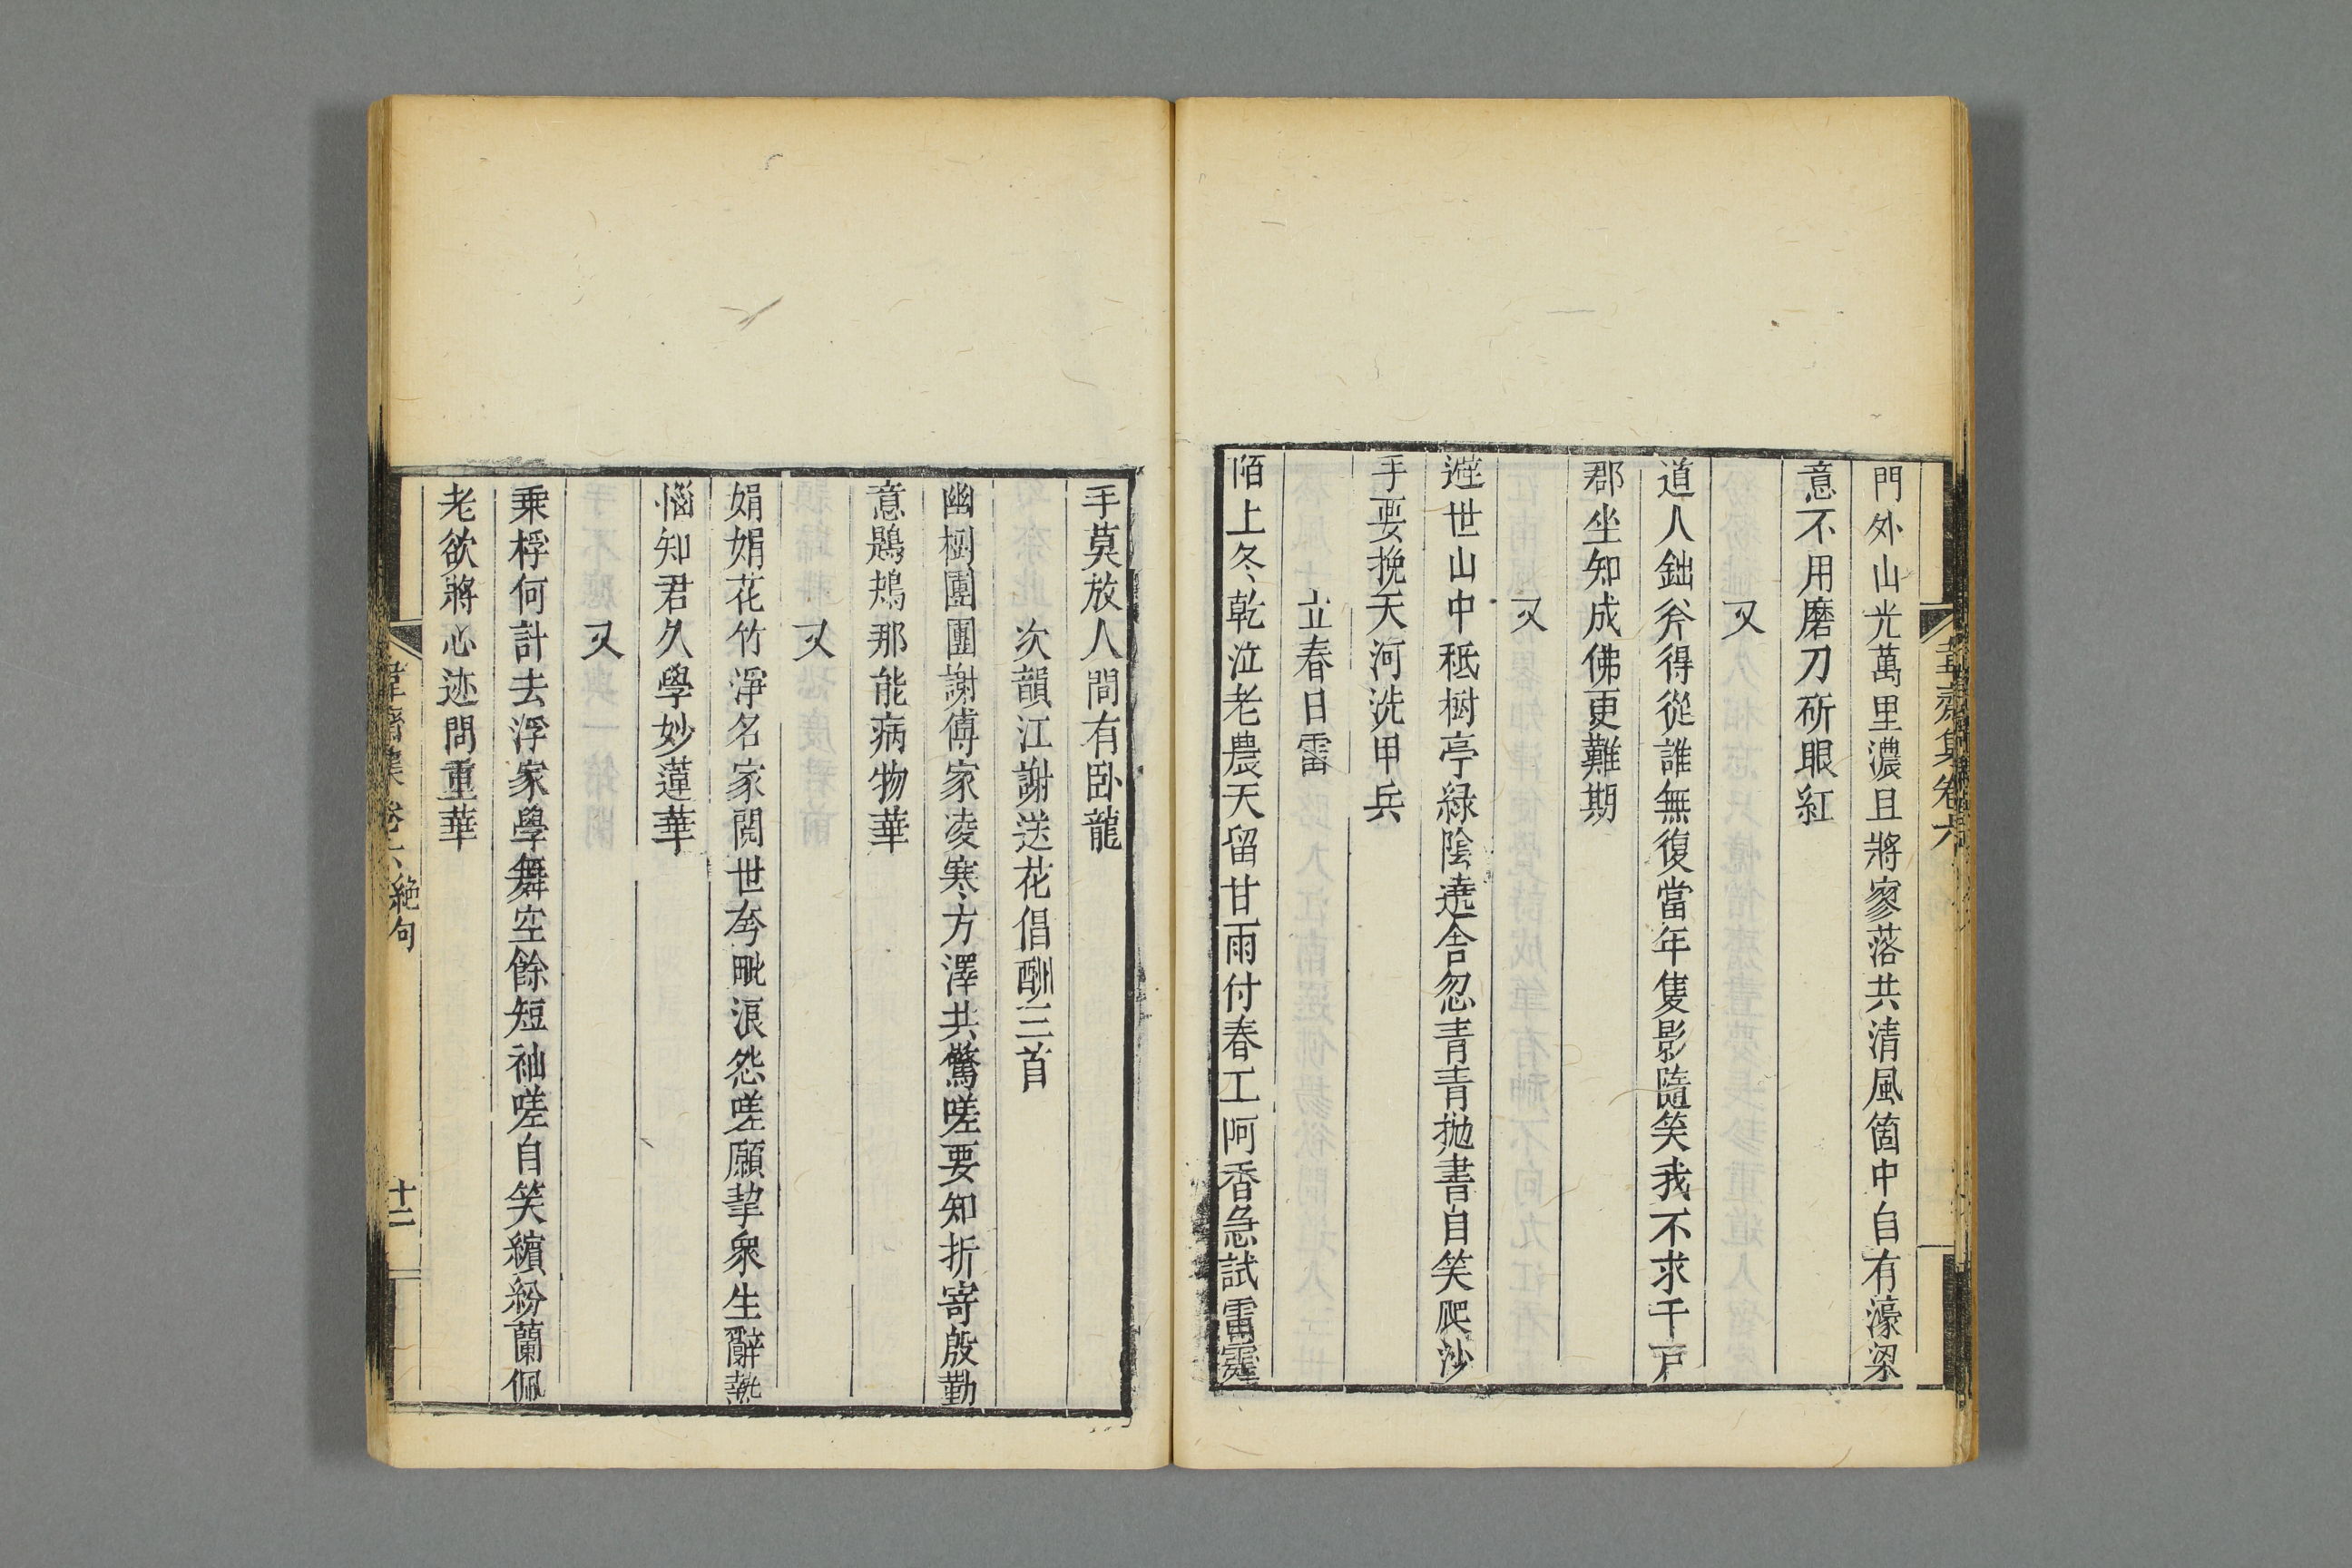 韋齋集卷六
門外山光萬里濃且將寥落共清風箇中自有濠梁
意不用磨刀斫眼紅
又
道人鈯斧得從誰無復當年隻影隨笑我不求千戶
郡坐知成佛更難期
又
避世山中秪樹亭綠陰遶舍忽青青抛書自笑爬沙
手要挽天河洗甲兵
立春日雷
陌上冬乾泣老農天留甘雨付春工阿香急試雷霆
手莫放人間有臥龍
次韻江謝送花倡酬三首
幽樹團團謝傅家凌寒方澤共驚嗟要知折寄殷勤
意鶗鴂那能病物華
又
娟娟花竹淨名家閱世夸毗浪怨嗟願挈衆生辭熱
惱知君久學妙蓮華
又
乘桴何計去浮家學舞空餘短袖嗟自笑繽紛蘭佩
老欲將心迹問重華
韋齋集卷六 絕句
十二